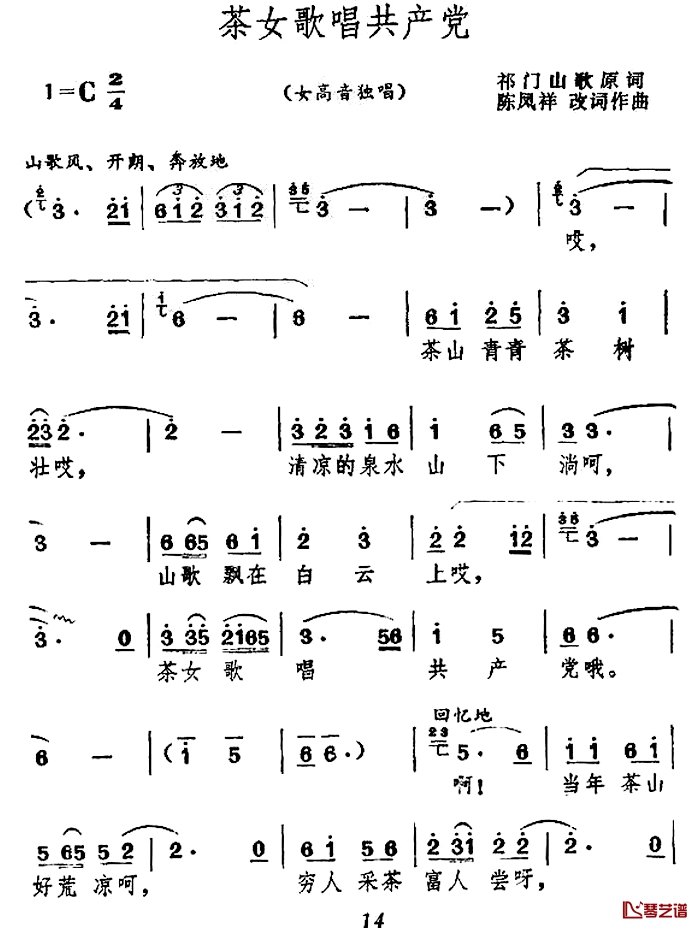 茶女歌唱共产党
1=C 2/4
（女高音独唱）
祁门山歌原词
陈凤祥 改词作曲
山歌风、开朗、奔放地
哎，
茶山青青茶树
壮哎，
清凉的泉水山下
淌呵，
山歌飘在白云
上哎，
茶女歌唱共产
党哦。
回忆地
啊！当年茶山
好荒凉呵，
穷人采茶富人尝呀，
14
琴艺谱